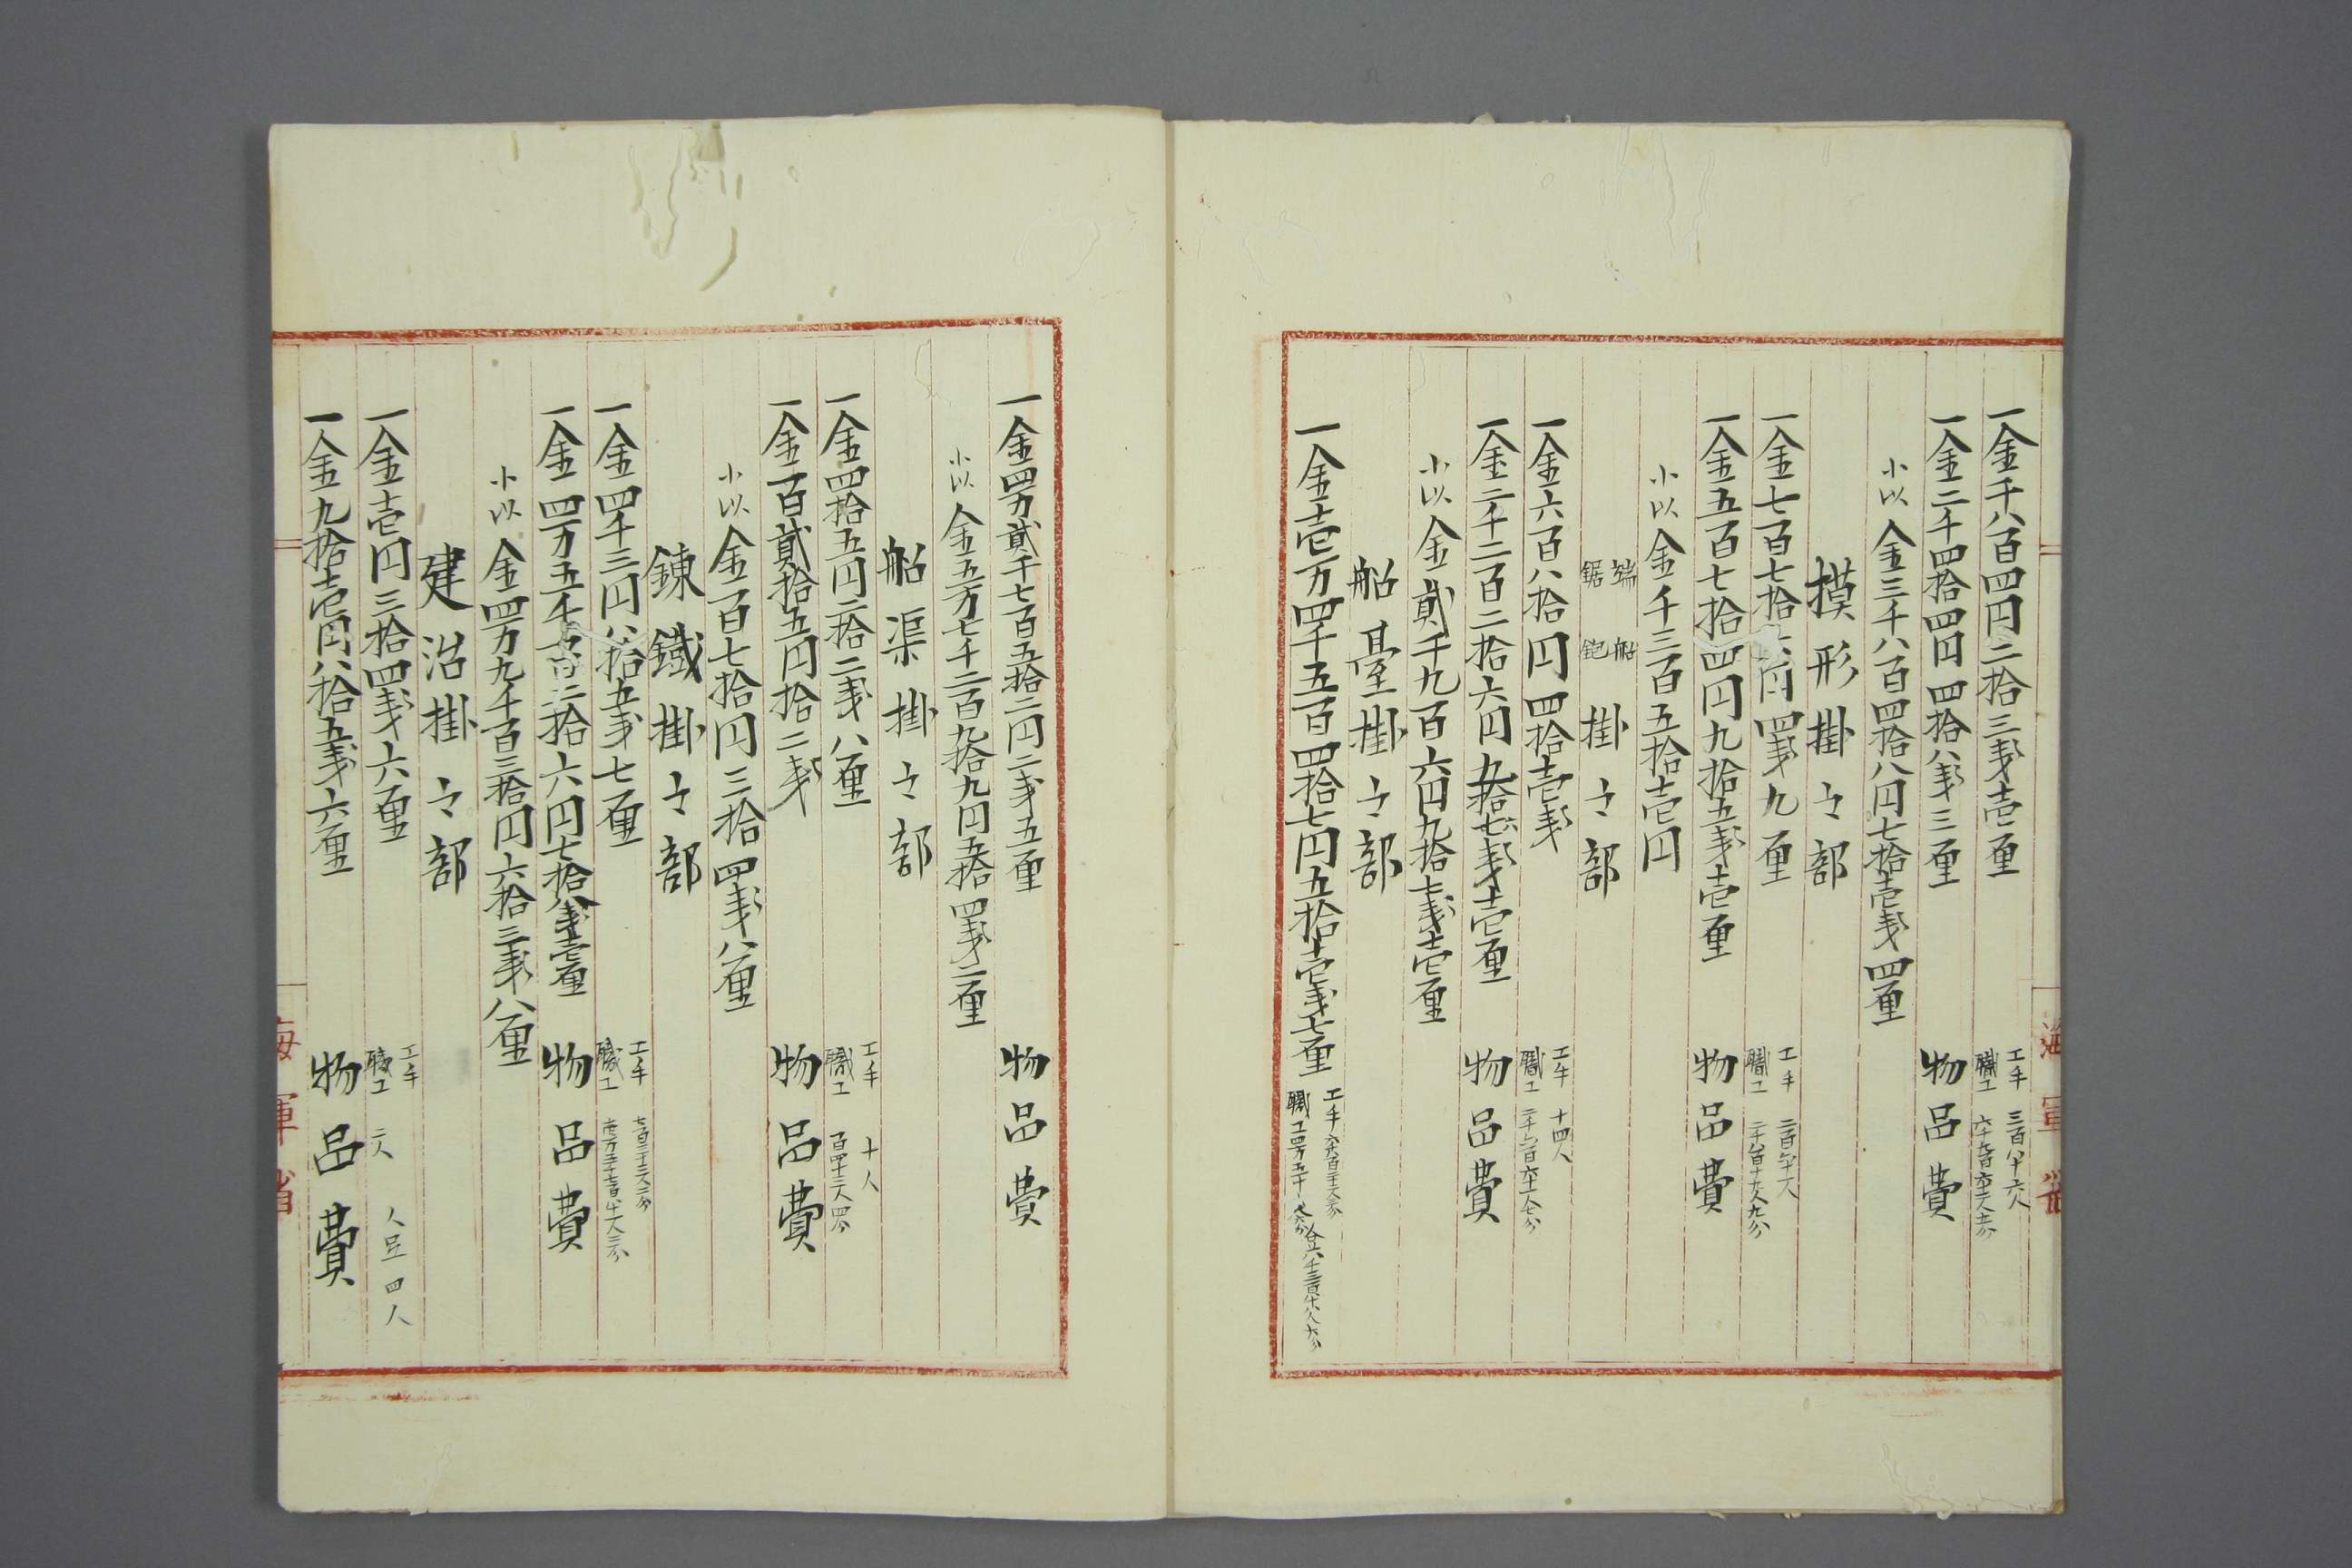 一金千八百四円二拾三戋壱厘 工手 三百八十六人 職工
一金二千四拾四円四拾八戋三厘 物品費
小以金三千八百四拾八円七拾壱戋四厘
摸形掛之部
一金七百七拾六円四戋九厘 工手 職工
一金五百七拾四円九拾五戋壱厘 物品費
小以金千三百五拾壱円
端船鋸鉋掛之部
一金六百八拾円四拾壱戋 工手 十四人 職工
一金二千二百二拾六円五拾六戋壱厘 物品費
小以金貳千九百六円九拾七戋壱厘
船臺掛之部
一金壱万四千五百四拾七円五拾壱戋七厘 工手 職工
海軍省
一金四万貳千七百五拾二円二戋五厘 物品費
小以金五万七千二百九拾九円五拾四戋二厘
船渠掛之部
一金四拾五円二拾二戋八厘 工手 十人 職工 百四十三人四分
一金百貳拾五円拾二戋 物品費
小以金百七拾円三拾四戋八厘
錬鐵掛之部
一金四千三円八拾五戋七厘 工手 職工
一金四万五千百二拾六円七拾八戋壱厘 物品費
小以金四万九千百三拾円六拾三戋八厘
建沽掛之部
一金壱円三拾四戋六厘 工手 職工 二人 人足四人
一金九拾壱円八拾五戋六厘 物品費
海軍省